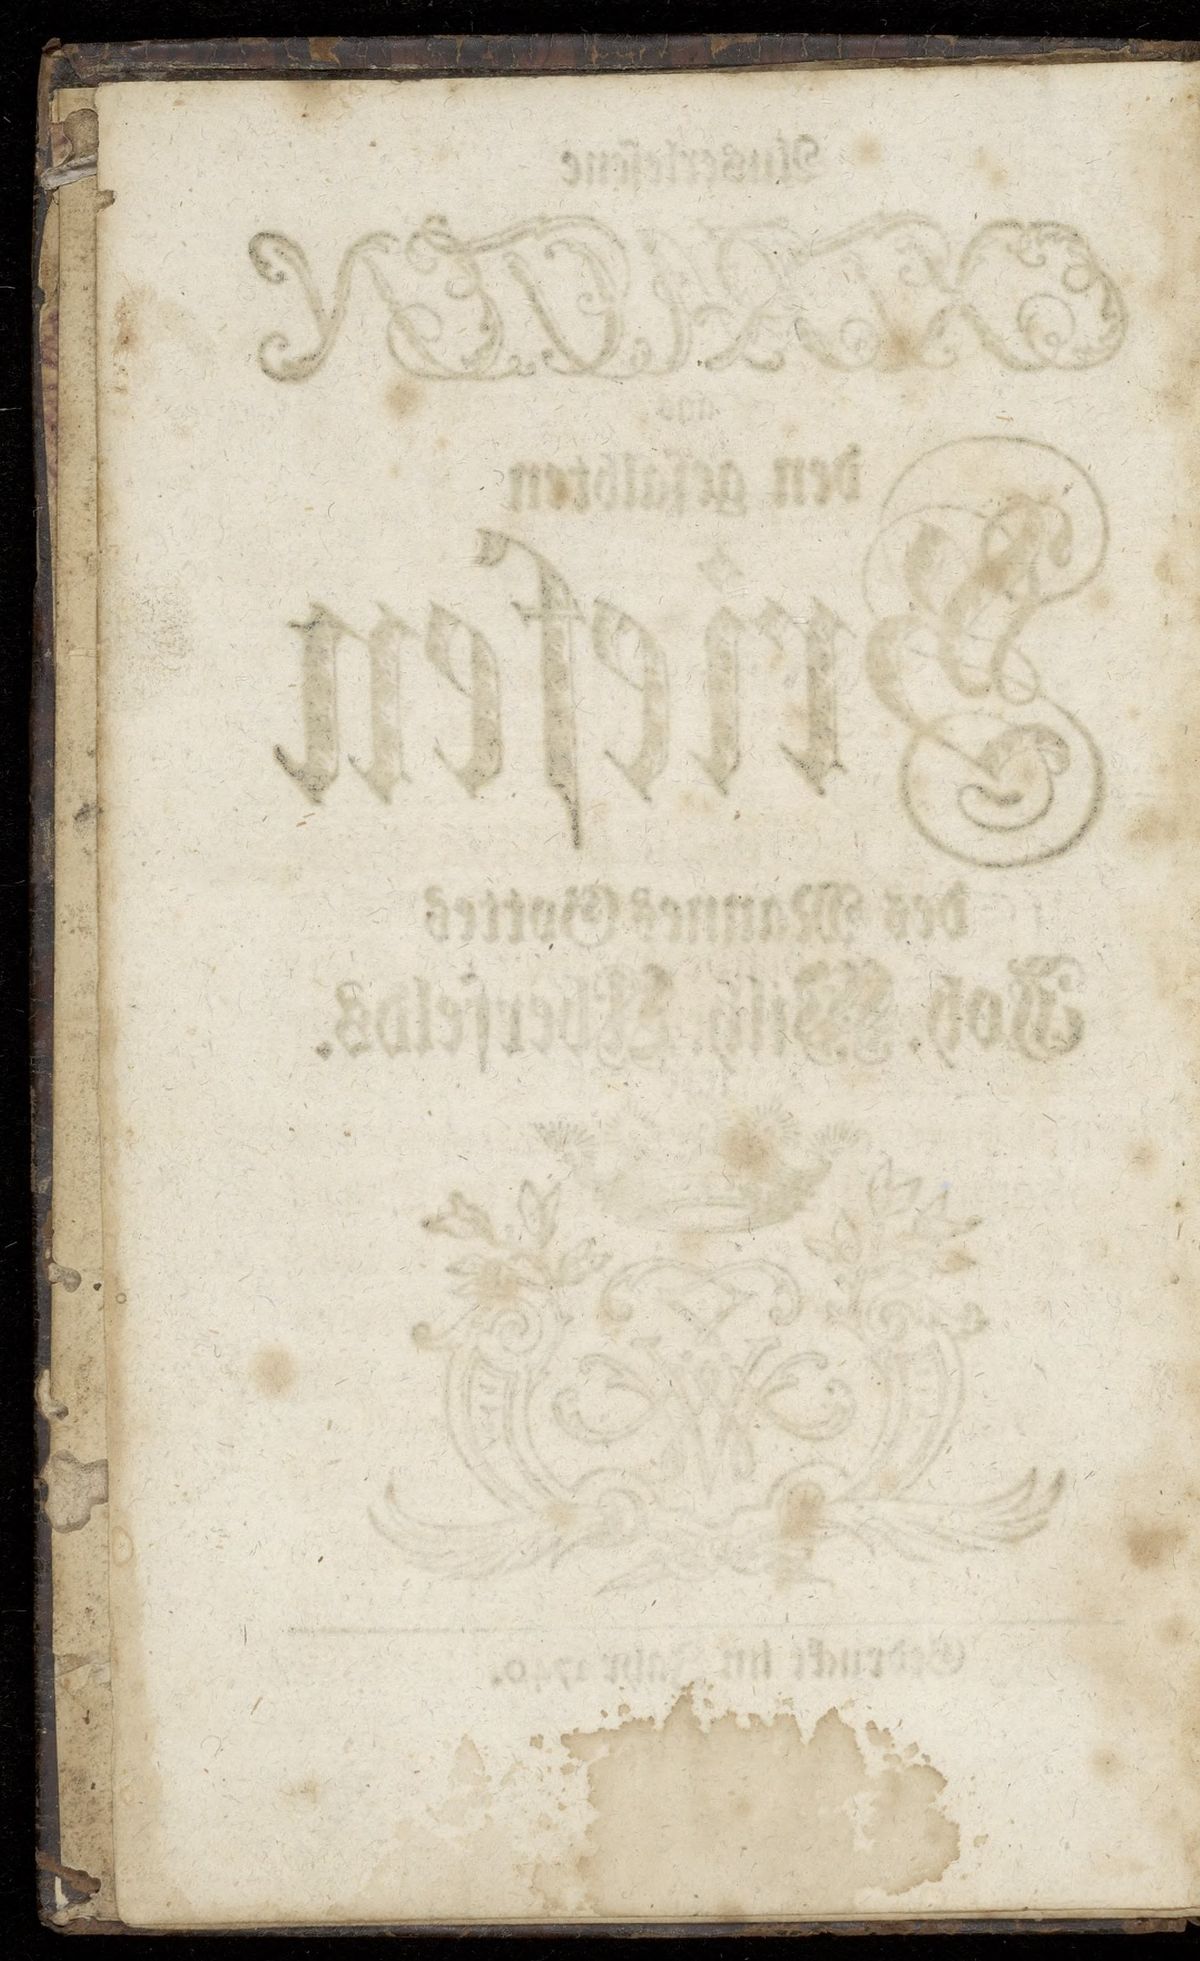 Auserlesene
EXTRACTEN
aus
den gesalbten
Briefen
des Mannes Gottes
Joh. Wilh. Überfelds.
Gedruckt im Jahr 1740.